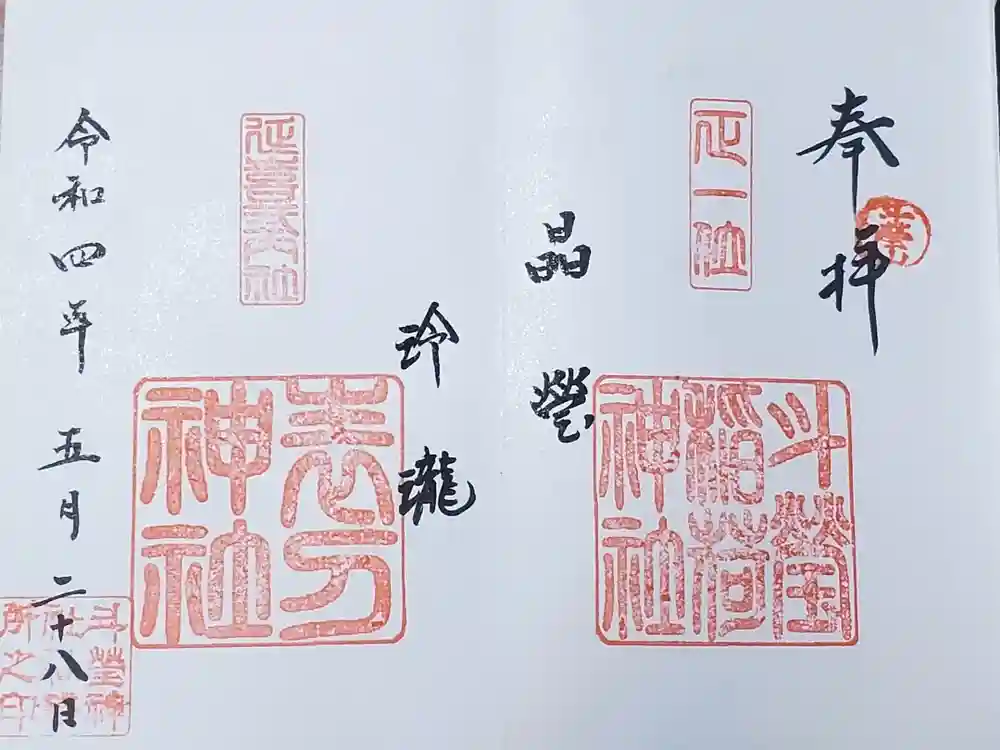 奉拝
正一位
斗瑩
稲荷
神社
晶瑩
玲瓏
延喜式内社
表刀
神社
令和四年五月二十八日
斗瑩神
社社務
所之印